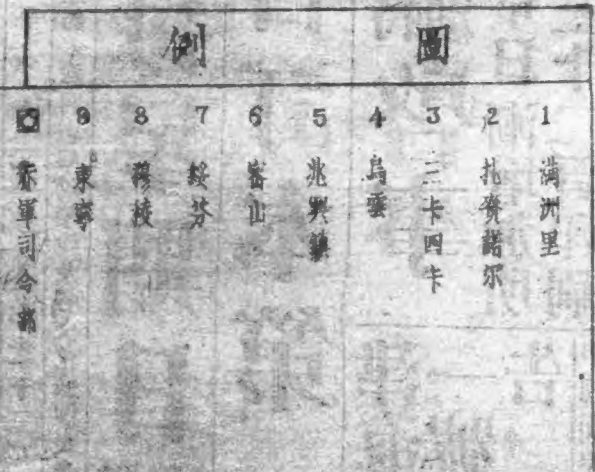 圖例
1 满洲里
2 扎賚諾尔
3 三卡四卡
4 烏雲
5 兆興鎮
6 密山
7 綏芬
8 穆棱
9 東寧
赤軍司令部